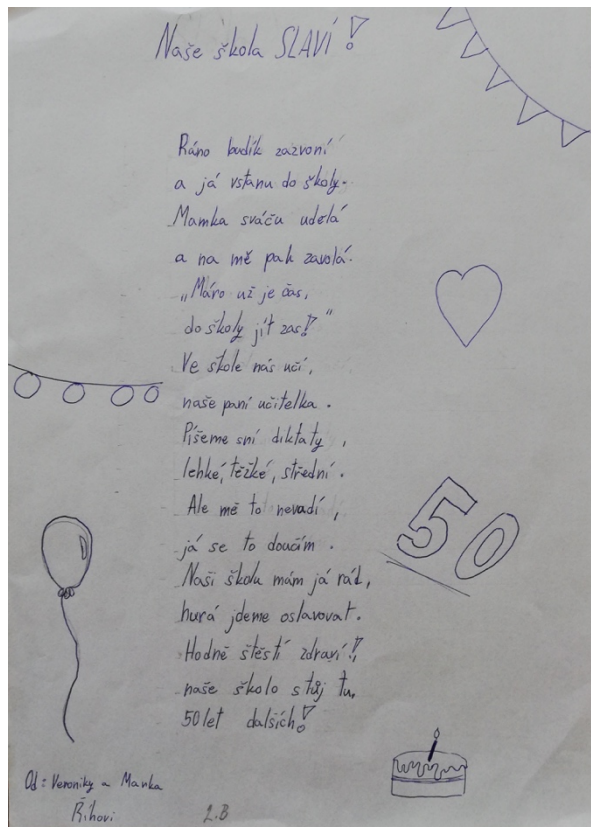 Naše škola SLAVÍ!
Ráno budík zazvoní
a já vstanu do školy.
Mamka sváču udělá
a na mě pak zavolá.
„Máro už je čas,
do školy jít zas!"
Ve škole nás učí,
naše paní učitelka.
Píšeme sní diktaty,
lehké, těžké, střední.
Ale mě to nevadí,
já se to doučím.
Naši školu mám já rád,
hurá jdeme oslavovat.
Hodně štěstí zdraví!,
naše školo stůj tu,
50 let dalších!
50
Od: Veroniky a Marka
Říhovi 2.B